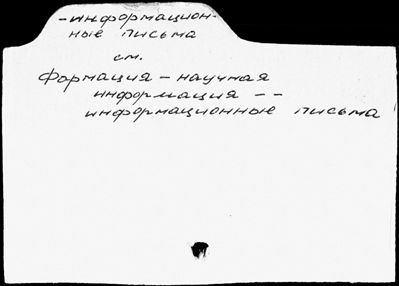 -информацион-
ные письма
см.
Формация - научная
информация --
информационные письма